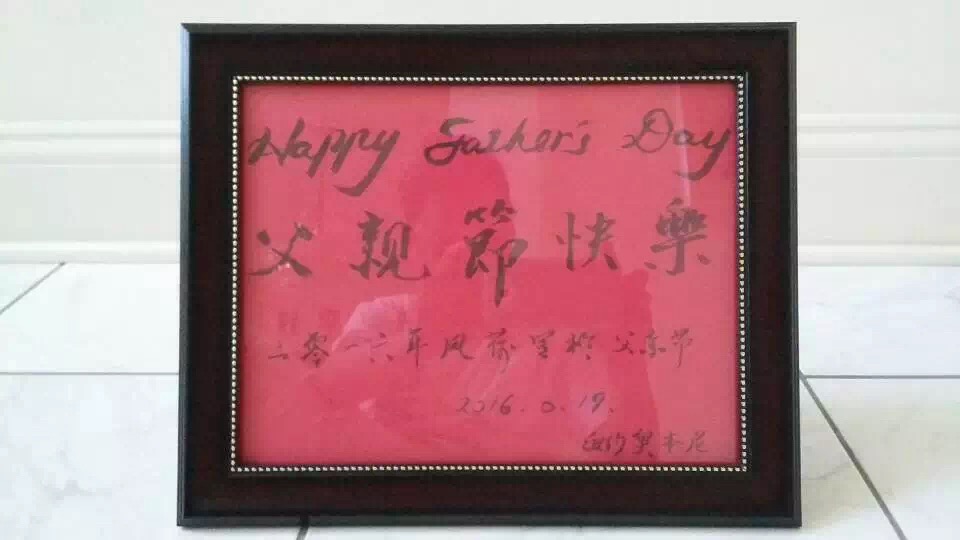 Happy Father's Day
父親節快樂
二零一六年风荷写於父亲节
2016.6.19.